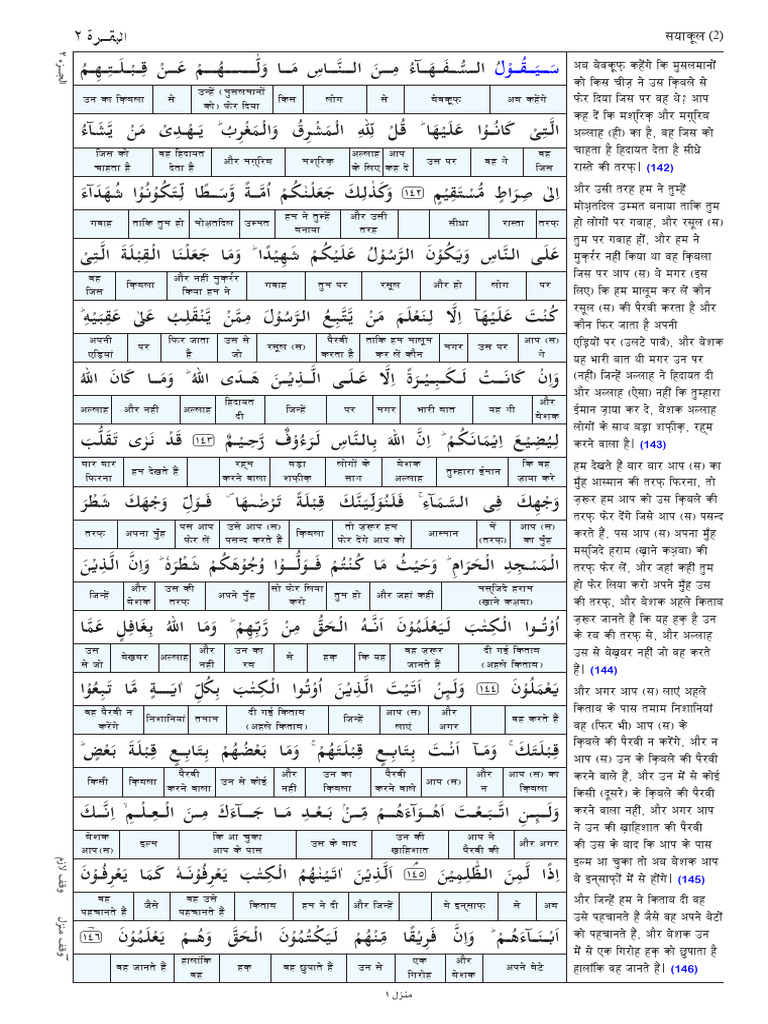 البقرة ٢
सयाकूल (2)
الجزء ٢
سَيَقُوْلُ السُّفَهَآءُ مِنَ النَّاسِ مَا وَلّٰىهُمْ عَنْ قِبْلَتِهِمُ
अब कहेंगे बेवकूफ़ से लोग किस उन्हें (मुसलमानों को) फेर दिया से उन का क़िबला
الَّتِىْ كَانُوْا عَلَيْهَا ؕ قُلْ لِّلّٰهِ الْمَشْرِقُ وَالْمَغْرِبُ ؕ يَهْدِىْ مَنْ يَّشَآءُ
वह जिस वह थे उस पर आप कह दें अल्लाह के लिए मश्रिक़ और मग़्रिब वह हिदायत देता है जिस को चाहता है
اِلٰى صِرَاطٍ مُّسْتَقِيْمٍ ١٤٢ وَكَذٰلِكَ جَعَلْنٰكُمْ اُمَّةً وَّسَطًا لِّتَكُوْنُوْا شُهَدَآءَ
तरफ़ रास्ता सीधा और उसी तरह हम ने तुम्हें बनाया उम्मत मोअ़तदिल ताकि तुम हो गवाह
عَلَى النَّاسِ وَيَكُوْنَ الرَّسُوْلُ عَلَيْكُمْ شَهِيْدًا ؕ وَمَا جَعَلْنَا الْقِبْلَةَ الَّتِىْ
पर लोग और हो रसूल तुम पर गवाह और नहीं मुक़र्रर किया हम ने क़िबला वह जिस
كُنْتَ عَلَيْهَآ اِلَّا لِنَعْلَمَ مَنْ يَّتَّبِعُ الرَّسُوْلَ مِمَّنْ يَّنْقَلِبُ عَلٰى عَقِبَيْهِ ؕ
आप (स) थे उस पर मगर ताकि हम मालूम कर लें कौन पैरवी करता है रसूल (स) उस से जो फिर जाता है पर अपनी एड़ियां
وَاِنْ كَانَتْ لَكَبِيْرَةً اِلَّا عَلَى الَّذِيْنَ هَدَى اللّٰهُ ؕ وَمَا كَانَ اللّٰهُ
और बेशक यह थी भारी बात मगर पर जिन्हें हिदायत दी अल्लाह और नहीं अल्लाह
لِيُضِيْعَ اِيْمَانَكُمْ ؕ اِنَّ اللّٰهَ بِالنَّاسِ لَرَءُوْفٌ رَّحِيْمٌ ١٤٣ قَدْ نَرٰى تَقَلُّبَ
कि वह ज़ाया करे तुम्हारा ईमान बेशक अल्लाह लोगों के साथ बड़ा शफ़ीक़ रह्म करने वाला हम देखते हैं बार बार फिरना
وَجْهِكَ فِى السَّمَآءِ ۚ فَلَنُوَلِّيَنَّكَ قِبْلَةً تَرْضٰىهَا ۪ فَوَلِّ وَجْهَكَ شَطْرَ
आप (स) का मुँह में (तरफ़) आस्मान तो ज़रूर हम फेर देंगे आप को क़िबला उसे आप (स) पसन्द करते हैं पस आप फेर लें अपना मुँह तरफ़
الْمَسْجِدِ الْحَرَامِ ؕ وَحَيْثُ مَا كُنْتُمْ فَوَلُّوْا وُجُوْهَكُمْ شَطْرَهٗ ؕ وَاِنَّ الَّذِيْنَ
मस्जिदे हराम (ख़ाने कअ़बा) और जहां कहीं तुम हो सो फेर लिया करो अपने मुँह उस की तरफ़ और बेशक जिन्हें
اُوْتُوا الْكِتٰبَ لَيَعْلَمُوْنَ اَنَّهُ الْحَقُّ مِنْ رَّبِّهِمْ ؕ وَمَا اللّٰهُ بِغَافِلٍ عَمَّا
दी गई किताब (अहले किताब) वह ज़रूर जानते हैं कि यह हक़ से उन का रब और नहीं अल्लाह बेख़बर उस से जो
يَعْمَلُوْنَ ١٤٤ وَلَىِٕنْ اَتَيْتَ الَّذِيْنَ اُوْتُوا الْكِتٰبَ بِكُلِّ اٰيَةٍ مَّا تَبِعُوْا
वह करते हैं और अगर आप (स) लाएं जिन्हें दी गई किताब (अहले किताब) तमाम निशानियां वह पैरवी न करेंगे
قِبْلَتَكَ ۚ وَمَآ اَنْتَ بِتَابِعٍ قِبْلَتَهُمْ ۚ وَمَا بَعْضُهُمْ بِتَابِعٍ قِبْلَةَ بَعْضٍ ؕ
आप (स) का क़िबला और न आप (स) पैरवी करने वाले उन का क़िबला और नहीं उन से कोई पैरवी करने वाला क़िबला किसी
وَلَىِٕنِ اتَّبَعْتَ اَهْوَآءَهُمْ مِّنْۢ بَعْدِ مَا جَآءَكَ مِنَ الْعِلْمِ ۙ اِنَّكَ
और अगर आप ने पैरवी की उन की ख़ाहिशात उस के बाद कि आ चुका आप के पास इल्म बेशक आप(स)
اِذًا لَّمِنَ الظّٰلِمِيْنَ ١٤٥ اَلَّذِيْنَ اٰتَيْنٰهُمُ الْكِتٰبَ يَعْرِفُوْنَهٗ كَمَا يَعْرِفُوْنَ
अब से बे इन्साफ़ और जिन्हें हम ने दी किताब वह उसे पहचानते हैं जैसे वह पहचानते हैं
اَبْنَآءَهُمْ ؕ وَاِنَّ فَرِيْقًا مِّنْهُمْ لَيَكْتُمُوْنَ الْحَقَّ وَهُمْ يَعْلَمُوْنَ ١٤٦
अपने बेटे और बेशक एक गिरोह उन से वह छुपाते हैं हक़ हालांकि वह वह जानते हैं
وقف لازم
وقف منزل
منزل ١
अब बेवकूफ़ कहेंगे कि मुसलमानों
को किस चीज़ ने उस क़िबले से
फेर दिया जिस पर वह थे? आप
कह दें कि मश्रिक़ और मग़्रिब
अल्लाह (ही) का है, वह जिस को
चाहता है हिदायत देता है सीधे
रास्ते की तरफ़। (142)
और उसी तरह हम ने तुम्हें
मोअ़तदिल उम्मत बनाया ताकि तुम
हो लोगों पर गवाह, और रसूल (स)
तुम पर गवाह हों, और हम ने
मुक़र्रर नहीं किया था वह क़िबला
जिस पर आप (स) थे मगर (इस
लिए) कि हम मालूम कर लें कौन
रसूल (स) की पैरवी करता है और
कौन फिर जाता है अपनी
एड़ियों पर (उलटे पावँ), और बेशक
यह भारी बात थी मगर उन पर
(नहीं) जिन्हें अल्लाह ने हिदायत दी
और अल्लाह (ऐसा) नहीं कि तुम्हारा
ईमान ज़ाया कर दे, बेशक अल्लाह
लोगों के साथ बड़ा शफ़ीक़, रह्म
करने वाला है। (143)
हम देखते हैं बार बार आप (स) का
मुँह आस्मान की तरफ़ फिरना, तो
ज़रूर हम आप को उस क़िबले की
तरफ़ फेर देंगे जिसे आप (स) पसन्द
करते हैं, पस आप (स) अपना मुँह
मस्जिदे हराम (ख़ाने कअ़बा) की
तरफ़ फेर लें, और जहां कहीं तुम
हो फेर लिया करो अपने मुँह उस
की तरफ़, और बेशक अहले किताब
ज़रूर जानते हैं कि यह हक़ है उन
के रब की तरफ़ से, और अल्लाह
उस से बेख़बर नहीं जो वह करते
हैं। (144)
और अगर आप (स) लाएं अहले
किताब के पास तमाम निशानियां
वह (फिर भी) आप (स) के
क़िबले की पैरवी न करेंगे, और न
आप (स) उन के क़िबले की पैरवी
करने वाले हैं, और उन में से कोई
किसी (दूसरे) के क़िबले की पैरवी
करने वाला नहीं, और अगर आप
ने उन की ख़ाहिशात की पैरवी
की उस के बाद कि आप के पास
इल्म आ चुका तो अब बेशक आप
बे इन्साफ़ों में से होंगे। (145)
और जिन्हें हम ने किताब दी वह
उसे पहचानते हैं जैसे वह अपने बेटों
को पहचानते हैं, और बेशक उन
में से एक गिरोह हक़ को छुपाता है
हालांकि वह जानते हैं। (146)